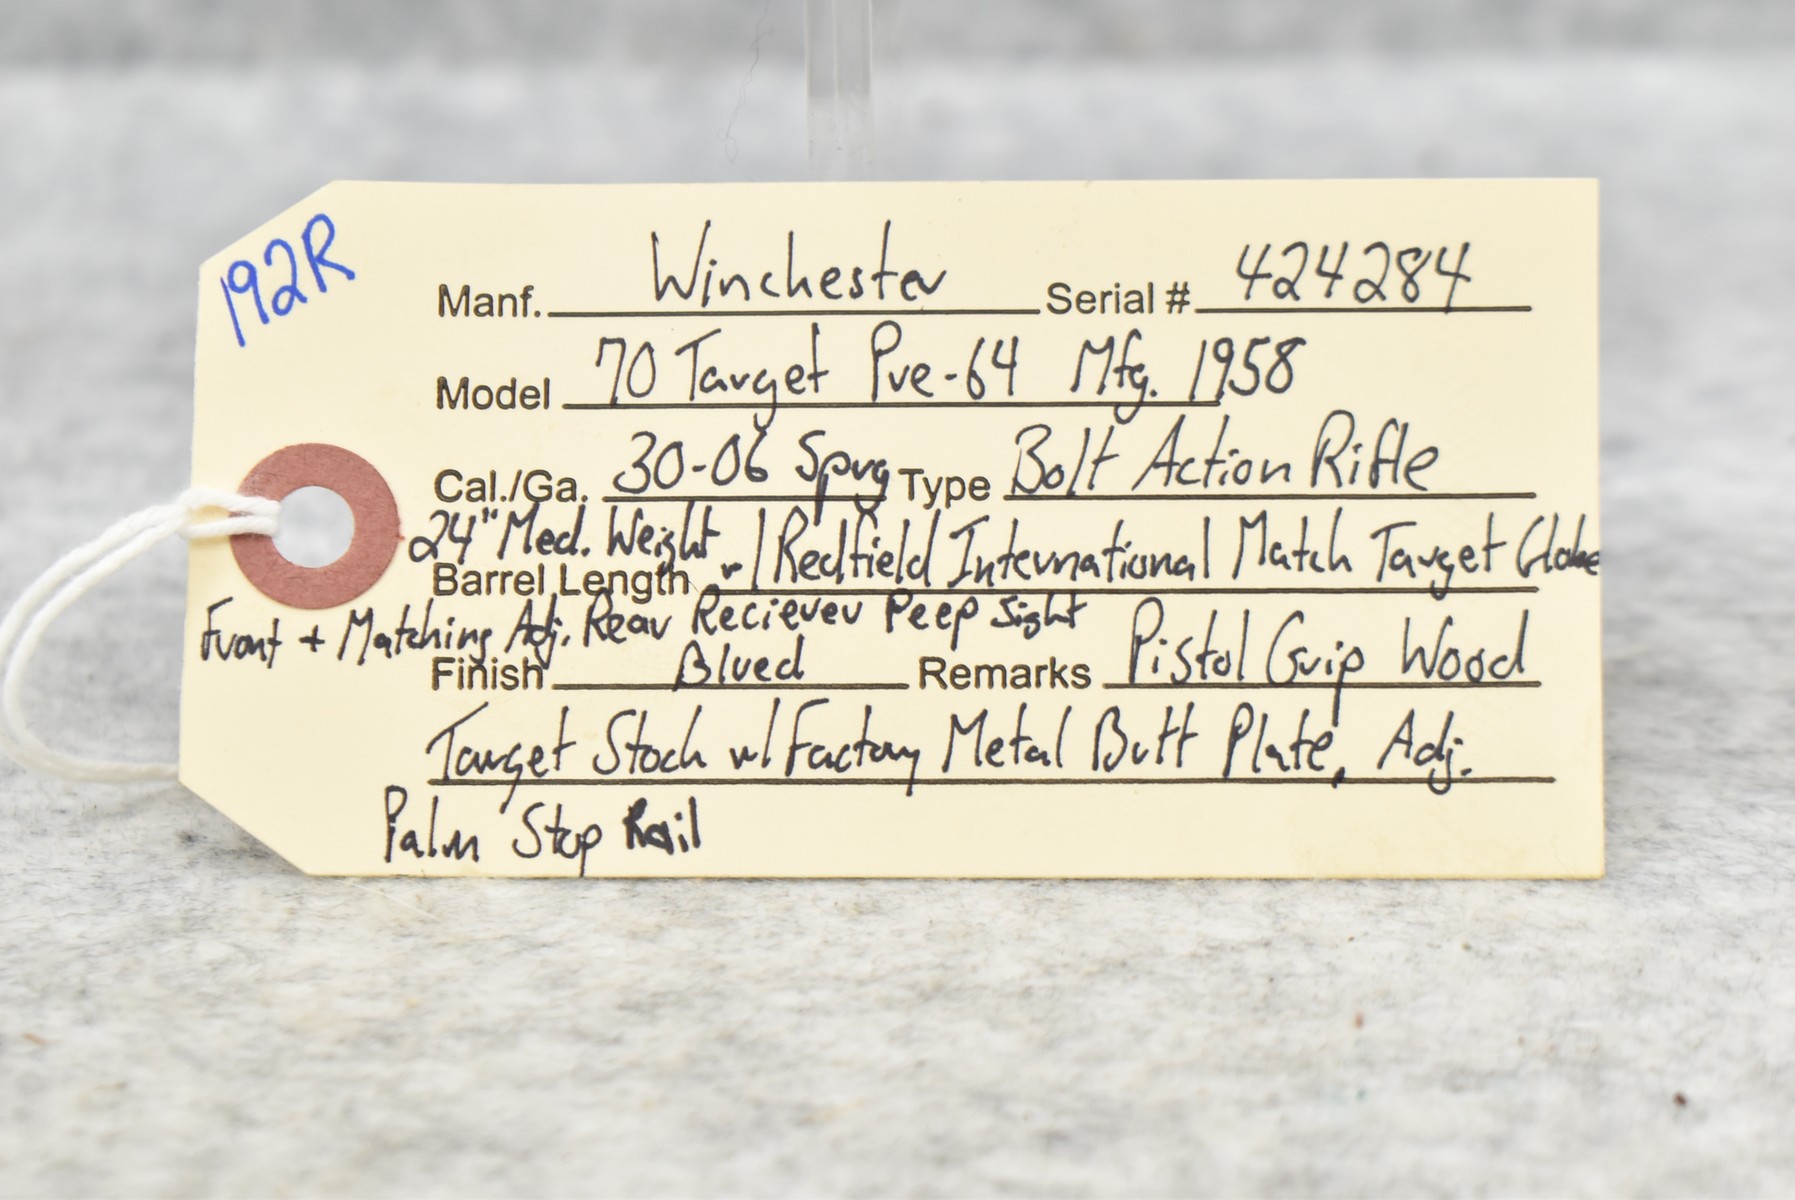 192R
Manf. Winchester Serial # 424284
Model 70 Target Pre-64 Mfg. 1958
Cal./Ga. 30-06 Sprg Type Bolt Action Rifle
24" Med. Weight w/ Redfield International Match Target Globe
Barrel Length
Front + Matching Adj. Rear Reciever Peep Sight
Finish Blued Remarks Pistol Grip Wood
Target Stock w/ Factory Metal Butt Plate, Adj.
Palm Stop Rail